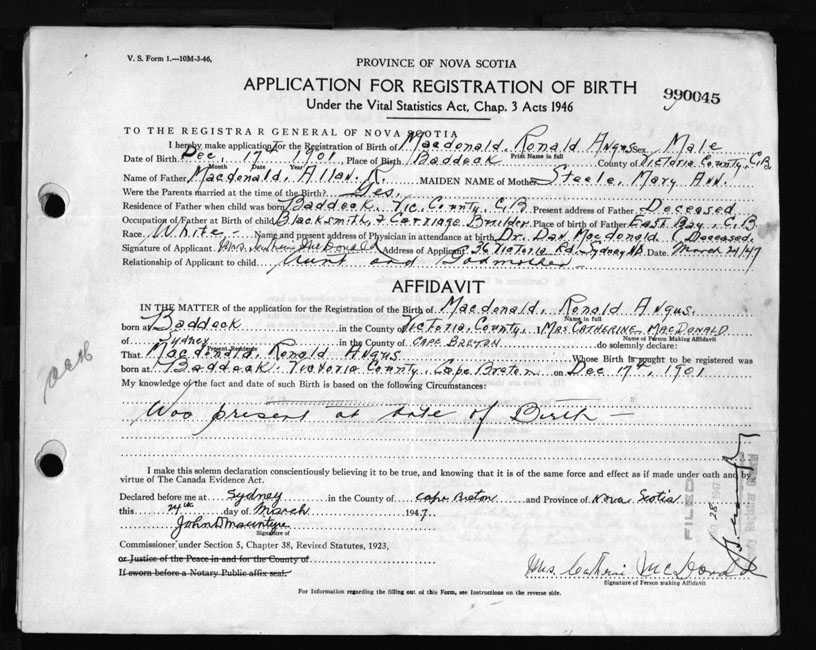 V. S. Form 1.—10M-3-46,
PROVINCE OF NOVA SCOTIA
APPLICATION FOR REGISTRATION OF BIRTH
990045
Under the Vital Statistics Act, Chap. 3 Acts 1946
TO THE REGISTRAR GENERAL OF NOVA SCOTIA
I hereby make application for the Registration of Birth of Macdonald, Ronald Angus Sex Male
Print Name in full
Date of Birth Dec. 17th 1901 Place of Birth Baddeck County of Victoria County, C.B.
Month Date Year
Name of Father Macdonald, Allan R. MAIDEN NAME of Mother Steele, Mary Ann.
Were the Parents married at the time of the Birth? Yes.
Residence of Father when child was born Baddeck Vic. County, C.B. Present address of Father Deceased
Occupation of Father at Birth of child Blacksmith & Carriage Builder Place of Birth of Father East Bay, C.B
Race White - Name and present address of Physician in attendance at birth Dr. Dan Macdonald, Deceased.
Signature of Applicant Mrs. Catherine MacDonald Address of Applicant 36 Victoria Rd. Sydney NS. Date March 24/47
Relationship of Applicant to child Aunt and Godmother
AFFIDAVIT
IN THE MATTER of the application for the Registration of the Birth of Macdonald, Ronald Angus.
Name in full
born at Baddeck in the County of Victoria, County, Mrs CATHERINE MACDONALD
Name of Person Making Affidavit
of Sydney in the County of CAPE BRETON do solemnly declare:
Present Residence
That Macdonald, Ronald Angus Whose Birth is sought to be registered was
born at Baddeck Victoria County, Cape Breton on Dec 17th, 1901
My knowledge of the fact and date of such Birth is based on the following Circumstances:
Was present at date of Birth —
I make this solemn declaration conscientiously believing it to be true, and knowing that it is of the same force and effect as if made under oath and by
virtue of The Canada Evidence Act.
Declared before me at Sydney in the County of Cape Breton and Province of Nova Scotia
this 24th day of March 1947.
John D MacIntyre
Signature of
Commissioner under Section 5, Chapter 38, Revised Statutes, 1923,
or Justice of the Peace in and for the County of
If sworn before a Notary Public affix seal.
Mrs. Catherine McDonald
Signature of Person making Affidavit
For Information regarding the filling out of this Form, see Instructions on the reverse side.
FILED
28 1947
Deputy Registrar General